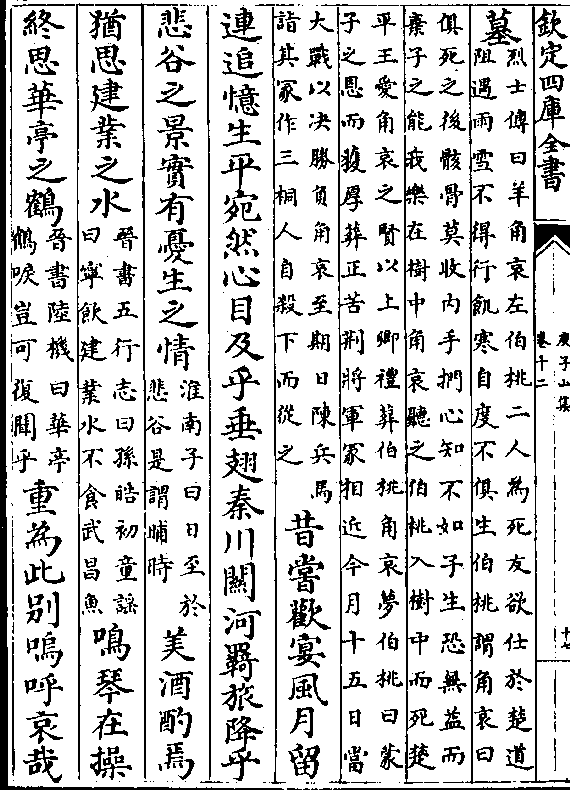 欽定四庫全書
庾子山集
卷十二
十七
墓烈士傳曰羊角哀左伯桃二人為死友欲仕於楚道
阻遇雨雪不得行飢寒自度不俱生伯桃謂角哀曰
俱死之後骸骨莫收内手捫心知不如子生恐無益而
棄子之能我樂在樹中角哀聽之伯桃入樹中而死楚
平王愛角哀之賢以上卿禮葬伯桃角哀夢伯桃曰蒙
子之恩而獲厚葬正苦荆將軍冢相近今月十五日當
大戰以决勝負角哀至期日陳兵馬
詣其冢作三桐人自殺下而從之
昔嘗歡宴風月留
連追憶生平宛然心目及乎垂翅秦川關河羇旅降乎
悲谷之景實有憂生之情淮南子曰日至於
悲谷是謂晡時
美酒酌焉
猶思建業之水晉書五行志曰孫皓初童謡
曰寧飲建業水不食武昌魚
鳴琴在操
終思華亭之鶴晉書陸機曰華亭
鶴唳豈可復聞乎
重為此别嗚呼哀哉